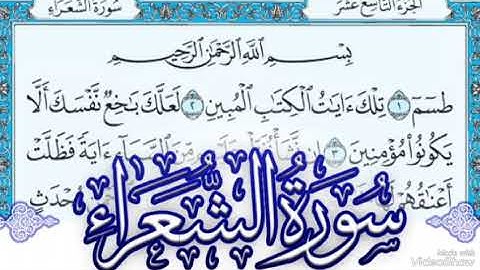 الجزء التاسع عشر
سورة الشعراء
بِسْمِ اللَّهِ الرَّحْمَٰنِ الرَّحِيمِ
طسٓمٓ ١ تِلْكَ ءَايَٰتُ ٱلْكِتَٰبِ ٱلْمُبِينِ ٢ لَعَلَّكَ بَٰخِعٌ نَّفْسَكَ أَلَّا
يَكُونُوا۟ مُؤْمِنِينَ ٣ إِن نَّشَأْ نُنَزِّلْ عَلَيْهِم مِّنَ ٱلسَّمَآءِ ءَايَةً فَظَلَّتْ
أَعْنَٰقُهُمْ مُحْدَثٍ
سُورَةُ الشُّعَرَاءِ
Made with
VideoShow